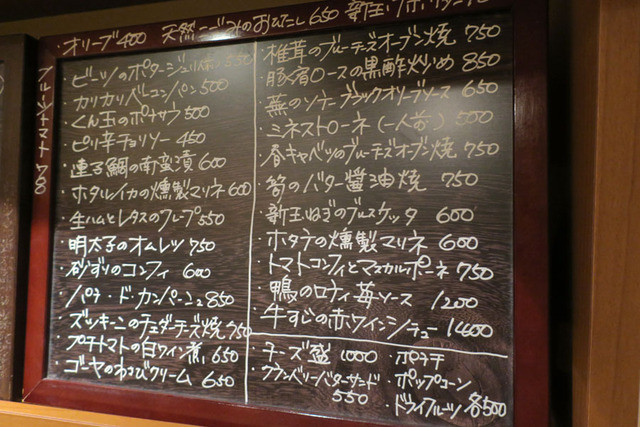 ・オリーブ 400 天然こごみのおひたし 650 新玉
・ビーツのポタージュ 550
・カリカリベーコンパン 500
・くん玉のポテサラ 500
・ピリ辛チョリソー 450
・連子鯛の南蛮漬 600
・ホタルイカの燻製マリネ 600
・生ハムとレタスのクレープ 550
・明太子のオムレツ 750
・砂ずりのコンフィ 600
・パテ・ド・カンパーニュ 850
・ズッキーニのチェダーチーズ焼 750
・プチトマトの白ワイン煮 650
・ゴーヤのわさびクリーム 650
・椎茸のブルーチーズオーブン焼 750
・豚肩ロースの黒酢炒め 850
・蕪のソテーブラックオリーブソース 650
・ミネストローネ(一人前) 500
・春キャベツのブルーチーズオーブン焼 750
・筍のバター醤油焼 750
・新玉ねぎのブルスケッタ 600
・ホタテの燻製マリネ 600
・トマトコンフィとマスカルポーネ 750
・鴨のロティ苺ソース 1200
・牛すじの赤ワインシチュー 1400
・チーズ盛 1000
・クランベリーバターサンド 550
・ポテチ
・ポップコーン
・ドライフルーツ 各500